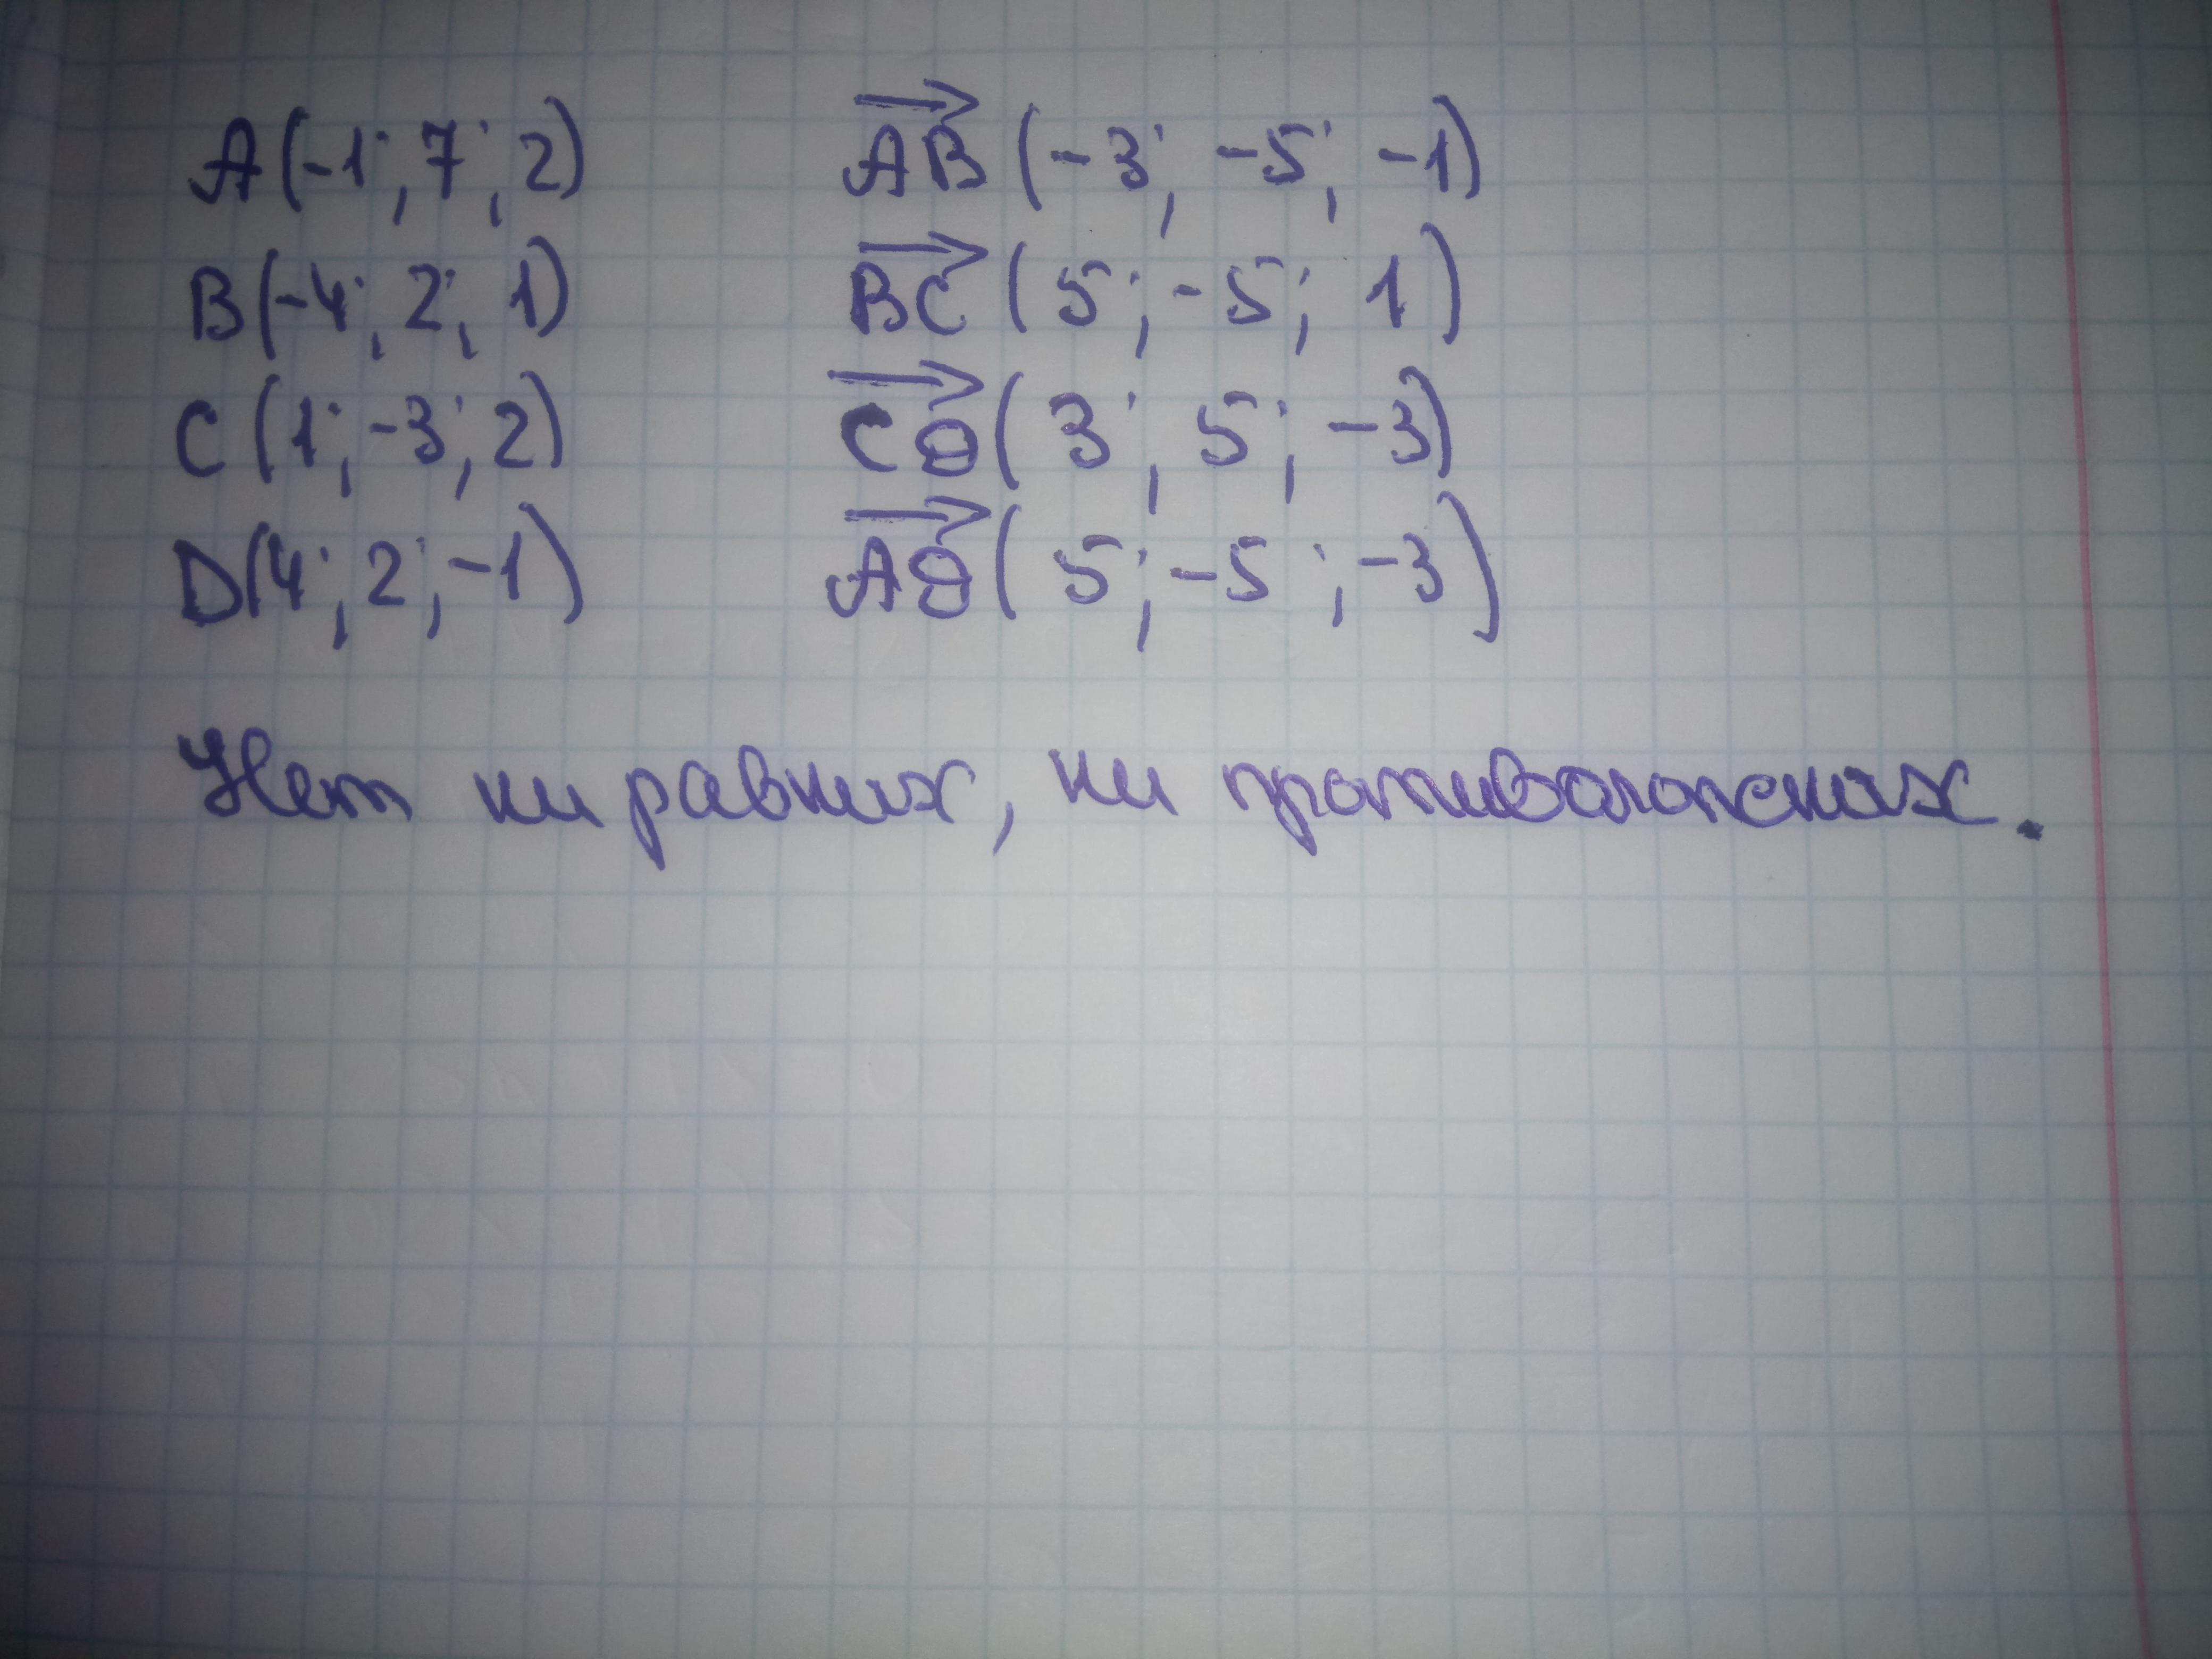 A(-1; 7; 2) AB(-3; -5; -1)
B(-4; 2; 1) BC(5; -5; 1)
C(1; -3; 2) CD(3; 5; -3)
D(4; 2; -1) AD(5; -5; -3)
Нет ни равных, ни противоположных.